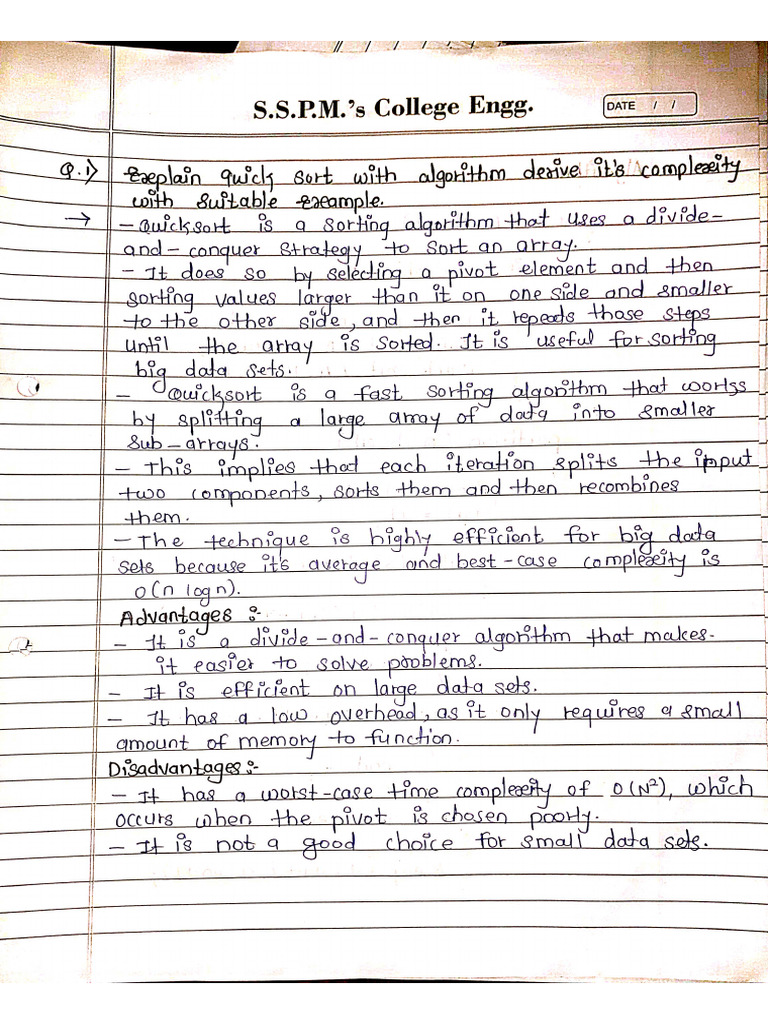 S.S.P.M.'s College Engg.
DATE / /
Q.1) Explain quick sort with algorithm derive it's complexity
with suitable example.
→ - Quicksort is a sorting algorithm that uses a divide-
and-conquer strategy to sort an array.
- It does so by selecting a pivot element and then
sorting values larger than it on one side and smaller
to the other side, and then it repeats those steps
until the array is sorted. It is useful for sorting
big data sets.
- Quicksort is a fast sorting algorithm that works
by splitting a large array of data into smaller
sub-arrays.
- This implies that each iteration splits the input
two components, sorts them and then recombines
them.
- The technique is highly efficient for big data
sets because it's average and best-case complexity is
O(n logn).
Advantages :-
- It is a divide-and-conquer algorithm that makes.
it easier to solve problems.
- It is efficient on large data sets.
- It has a low overhead, as it only requires a small
amount of memory to function.
Disadvantages :-
- It has a worst-case time complexity of O(N²), which
occurs when the pivot is chosen poorly.
- It is not a good choice for small data sets.